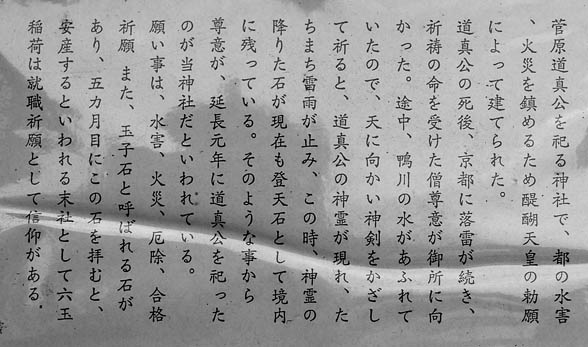 菅原道真公を祀る神社で、都の水害
、火災を鎮めるため醍醐天皇の勅願
によって建てられた。
道真公の死後、京都に落雷が続き、
祈祷の命を受けた僧尊意が御所に向
かった。途中、鴨川の水があふれて
いたので、天に向かい神剣をかざし
て祈ると、道真公の神霊が現れ、た
ちまち雷雨が止み、この時、神霊の
降りた石が現在も登天石として境内
に残っている。そのような事から
尊意が、延長元年に道真公を祀った
のが当神社だといわれている。
願い事は、水害、火災、厄除、合格
祈願　また、玉子石と呼ばれる石が
あり、五カ月目にこの石を拝むと、
安産するといわれる末社として六玉
稲荷は就職祈願として信仰がある．